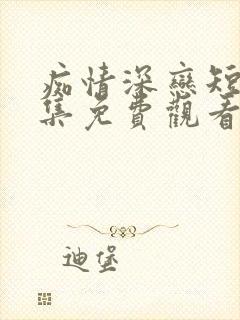 痴情深戀短
集免費觀看
迪堡